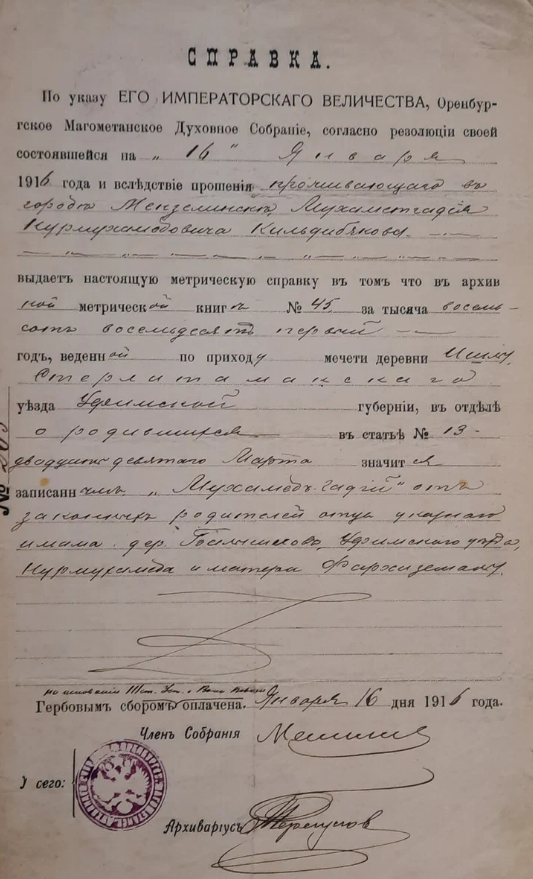 СПРАВКА.
По указу ЕГО ИМПЕРАТОРСКАГО ВЕЛИЧЕСТВА, Оренбург-
гское Магометанское Духовное Собраніе, согласно резолюціи своей
состоявшейся на „16“ Января
1916 года и вслѣдствіе прошенія проживающаго въ
городѣ Мензелинскѣ, Мухаметгадія
Нурмухамедовича Кильдибякова
выдаетъ настоящую метрическую справку въ томъ что въ архив
ной метрической книгѣ №45 за тысяча восемь-
сотъ восемьдесятъ первый
годъ, веденной по приходу мечети деревни
Стерлитамакскаго
уѣзда Уфимской губерніи, въ отдѣлѣ
о родившихся въ статьѣ № 13-
двадцать девятаго Марта значится
№
записаннымъ „Мухамедъ-гадій“ отъ
законныхъ родителей отца указнаго
имама дер. Уфимскаго уѣзда,
Нурмухамеда и матери
на основаніи
Гербовымъ сборомъ оплачена. Января 16 дня 1916 года.
Членъ Собранія
сего:
Архиваріусъ